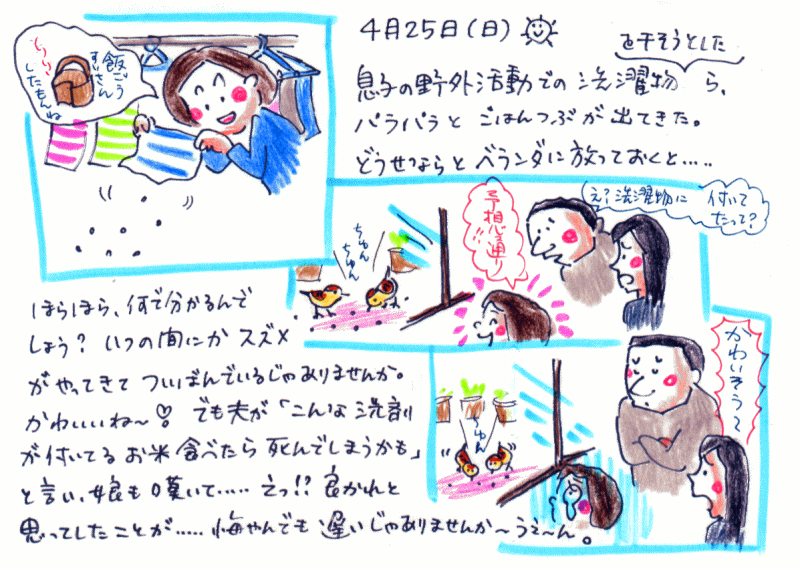 4月25日(日)
を干そうとした
息子の野外活動での洗濯物 ら、
パラパラと ごはんつぶが出てきた。
どうせならと ベランダに放っておくと‥‥
飯ごう
すいさん
したもんね
え?洗濯物に 付いて
たって?
予想通り
ちゅん
ちゅん
ほらほら、何で分かるんで
しょう? いつの間にか スズメ
がやってきて ついばんでいるじゃありませんか。
かわいいね〜♡ でも夫が「こんな洗剤
が付いてる お米食べたら 死んでしまうかも」
と言い、娘も嘆いて‥‥‥ えっ!? 良かれと
思ってしたことが‥‥‥ 悔やんでも 遅いじゃありませんか〜うえ〜ん。
かわいそう〜
ちゅん